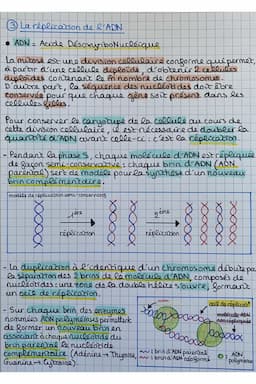 ③ La réplication de l'ADN
• ADN : Acide DésoxyriboNucléique
La mitose est une division cellulaire conforme qui permet,
à partir d'une cellule diploïde, d'obtenir 2 cellules
diploïdes contenant le m nombre de chromosomes.
D'autre part, la séquence des nucléotides doit être
conservée pour que chaque gène soit présent dans les
cellules filles.
Pour conserver le caryotype de la cellule au cours de
cette division cellulaire, il est nécessaire de doubler la
quantité d'ADN avant celle-ci : c'est la réplication.
- Pendant la phase S, chaque molécule d'ADN est répliquée
de façon semi-conservative : chaque brin d'ADN (ADN
parental) sert de modèle pour la synthèse d'un nouveau
brin complémentaire.
modèle de réplication semi-conservatif
1ère
réplication
2ème
réplication
- La duplication à l'identique d'un chromosome débute par
la séparation des 2 brins de la molécule d'ADN, composés de
nucléotides : une zone de la double hélice s'ouvre, formant
un œil de réplication.
- Sur chaque brin des enzymes
nommées ADN polymérases permettent
de former un nouveau brin en
associant à chaque nucléotide du
brin parental la nucléotide
complémentaire (Adénine → Thymine,
Guanine → Cytosine).
œil de réplicat°
molécule d'ADN
1 brin d'ADN parental
1 brin d'ADN
ADN
polymérase